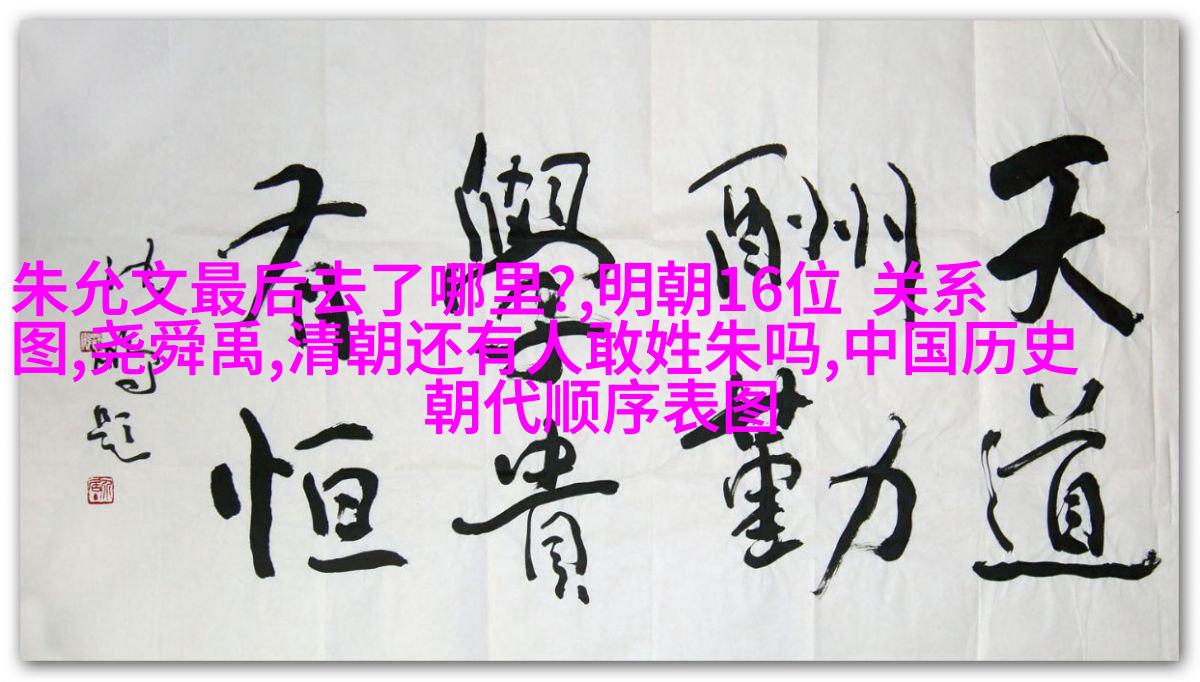 朱允文最后去了哪里?,明朝16位 关系
图,尧舜禹,清朝还有人敢姓朱吗,中国历史
朝代顺序表图
天道
酬勤
學貴
有恒
题